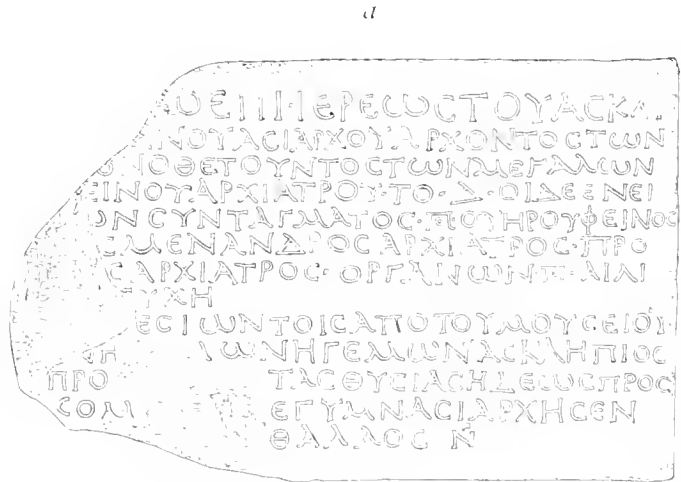 d
ΕΠΙ·ΙΕΡΕΩϹΤΟΥΑϹΚΛ
ΙΝΟΥΑϹΙΑΡΧΟΥΑΡΧΟΝΤΟϹΤΩΝ
ΝΟΘΕΤΟΥΝΤΟϹΤΩΝΜΕΓΑΛΩΝ
ΕΙΝΟΥΑΡΧΙΑΤΡΟΥ·ΤΟ·Δ·ΟΙΔΕΕΝΕΙ
ΩΝϹΥΝΤΑΓΜΑΤΟϹ·Π·ΟΥΗΡΟΥΦΕΙΝΟϹ
ΜΕΝΑΝΔΡΟϹΑΡΧΙΑΤΡΟϹ·ΠΡΟ
ϹΑΡΧΙΑΤΡΟϹ·ΟΡΓΑΝΩΝ·Π·ΑΙΛΙ
ΥΧΗ
ΕϹΙΩΝΤΟΙϹΑΠΟΤΟΥΜΟΥϹΕΙΟΥ·
ΙΩΝΗΓΕΜΩΝΑϹΚΛΗΠΙΟϹ
ΠΡΟ ΤΑϹΘΥϹΙΑϹΗΔΕΩϹΠΡΟϹ
ϹΟΛΙ ΕΓΥΜΝΑϹΙΑΡΧΗϹΕΝ
ΘΑΛΛΟϹ Ν